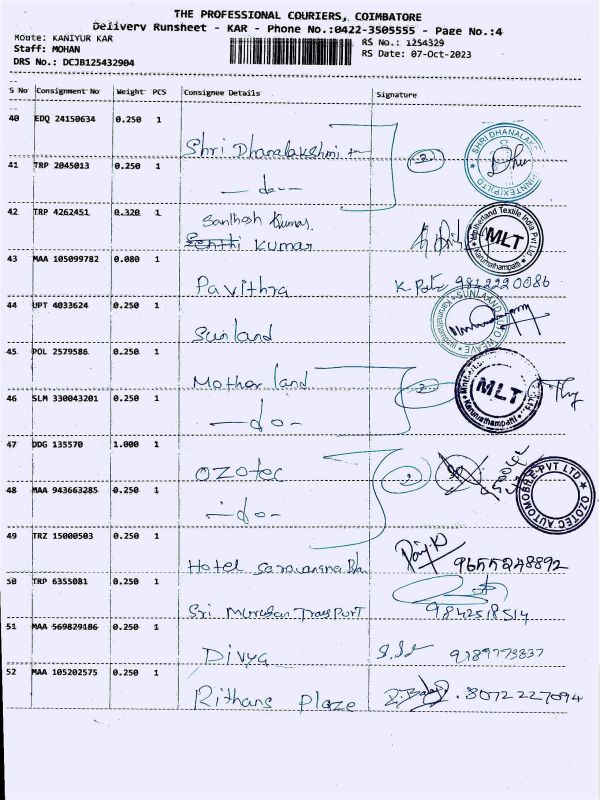 THE PROFESSIONAL COURIERS, COIMBATORE
Delivery Runsheet - KAR - Phone No.:0422-3505555 - Page No.:4
Route: KANIYUR KAR
RS No.: 1254329
Staff: MOHAN
RS Date: 07-Oct-2023
DRS No.: DCJB125432904
S No Consignment No Weight PCS Consignee Details Signature
40 EDQ 24150634 0.250 1
Shri Dhanalakshmi 2
SHRI DHANALAK
41 TRP 2045013 0.250 1
-do-
42 TRP 4262451 0.320 1
Santhosh Kumar
Senthi Kumar
Motherland Textile India Pvt Ltd
MLT
Karumathampatti
43 MAA 105099782 0.080 1
Pavithra 9842220086
44 UPT 4033624 0.250 1
Sunland
45 POL 2579586 0.250 1
Mother land 2
MLT
Karumathampatti
46 SLM 330043201 0.250 1
-do-
47 DDG 135570 1.000 1
Ozotec 2
OZOTEC AUTOMOBILE PVT LTD
48 MAA 943663285 0.250 1
-do-
49 TRZ 15000503 0.250 1
Hotel 9655248892
50 TRP 6355081 0.250 1
Sri Murugan Transport 9842518514
51 MAA 569829186 0.250 1
Divya 9189773837
52 MAA 105202575 0.250 1
Rithans Plaze 8072227094